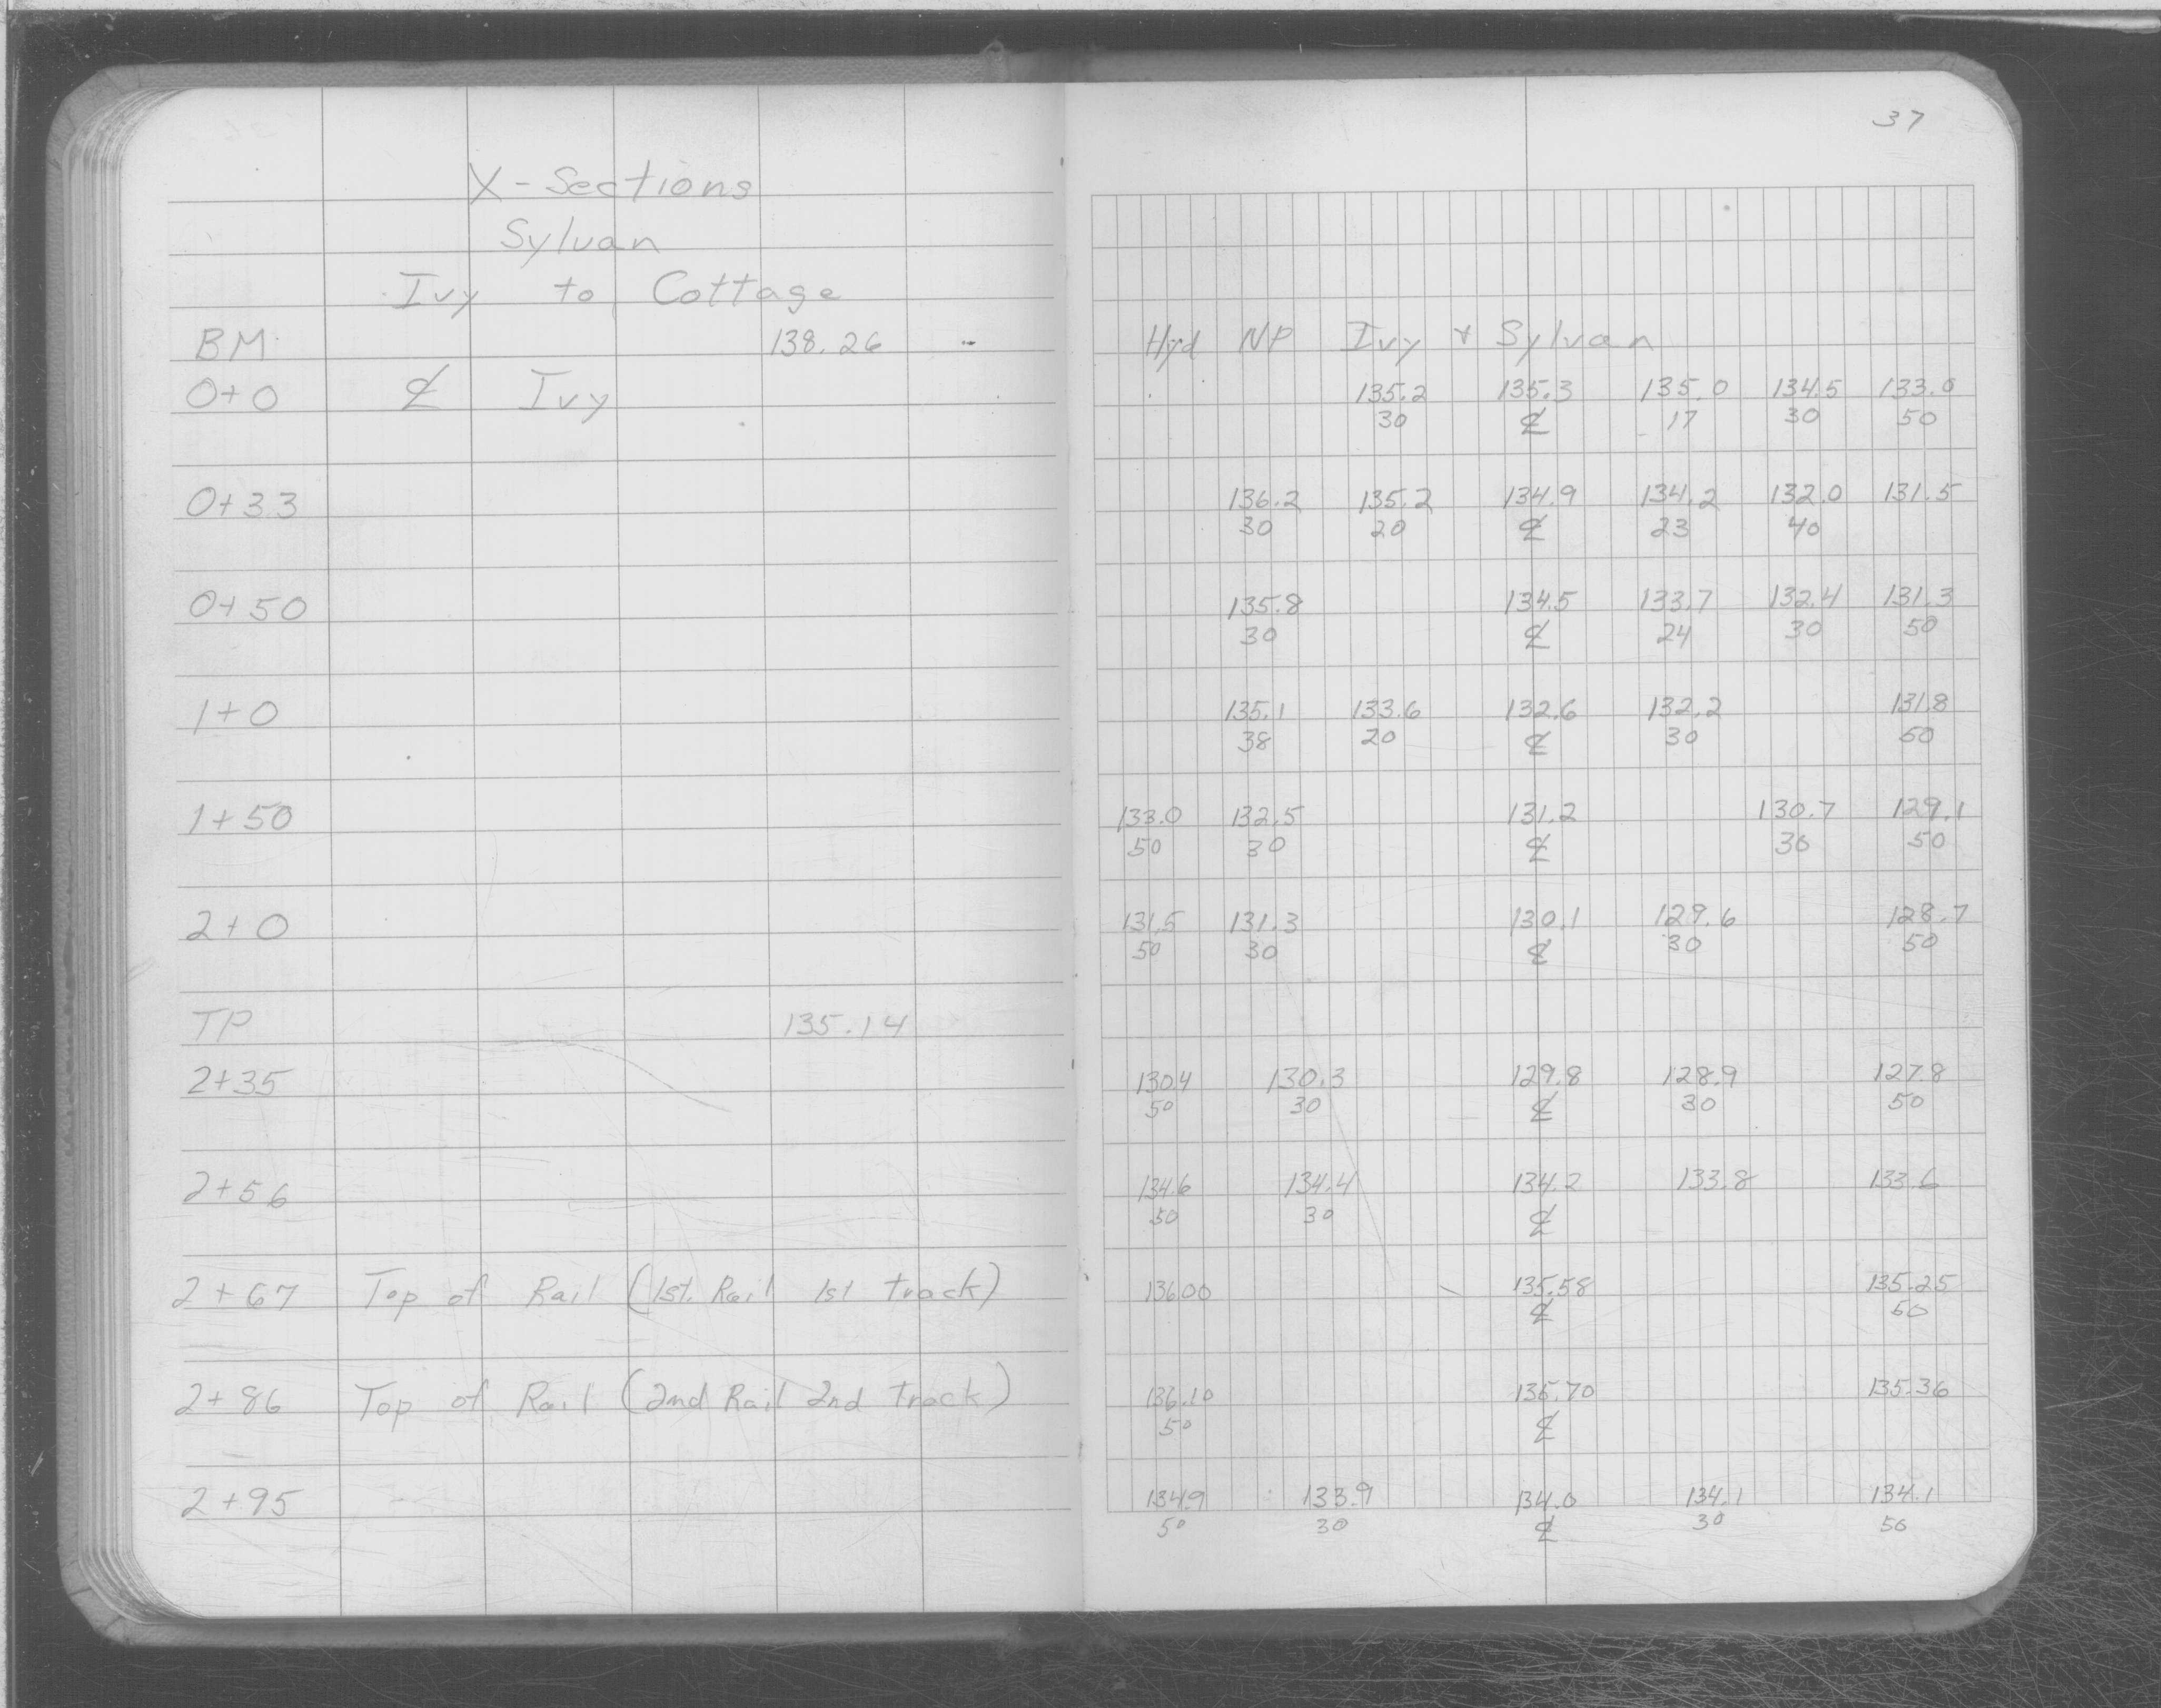 37
X-Sections
Sylvan
Ivy to Cottage
BM 138.26 Hyd NP Ivy + Sylvan
0+0 ℄ Ivy 135.2 135.3 135.0 134.5 133.0
30 ℄ 17 30 50
0+33 136.2 135.2 134.9 134.2 132.0 131.5
30 20 ℄ 23 40
0+50 135.8 134.5 133.7 132.4 131.3
30 ℄ 24 30 50
1+0 135.1 133.6 132.6 132.2 131.8
38 20 ℄ 30 50
1+50 133.0 132.5 131.2 130.7 129.1
50 30 ℄ 30 50
2+0 131.5 131.3 130.1 129.6 128.7
50 30 ℄ 30 50
TP 135.14
2+35 130.4 130.3 129.8 128.9 127.8
50 30 ℄ 30 50
2+56 134.6 134.4 134.2 133.8 133.6
50 30 ℄
2+67 Top of Rail (1st. Rail 1st track) 136.00 135.58 135.25
℄ 50
2+86 Top of Rail (2nd Rail 2nd track) 136.10 135.70 135.36
50 ℄
2+95 134.9 133.9 134.0 134.1 134.1
50 30 ℄ 30 50